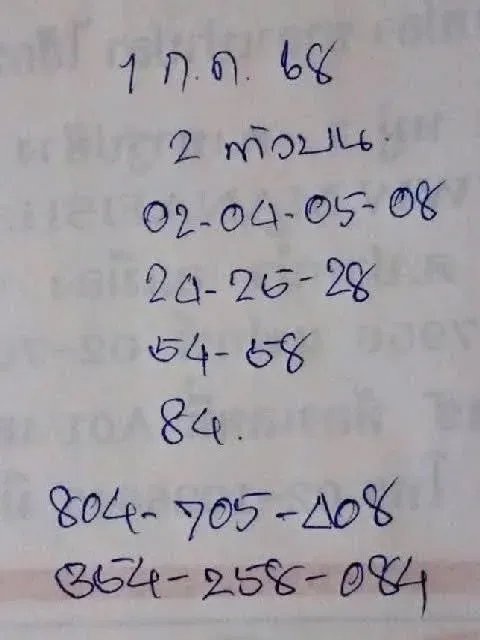 1 ก.ค. 68
2 ตัวบน.
02-04-05-08
24-25-28
54-58
84.
804-705-408
354-258-084